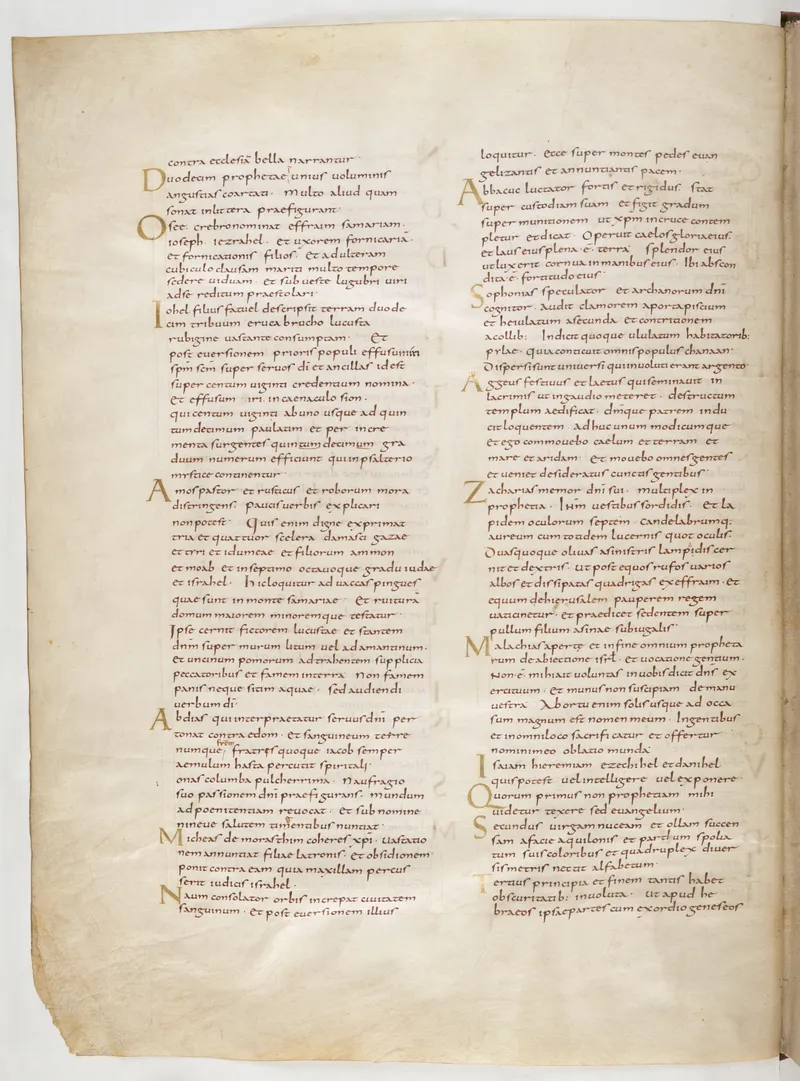 contra ecclesiā bella narrantur·
Duodecim prophetae unius uoluminis
angustias coartati· multo aliud quam
sonat in littera praefigurant·
Osee· crebro nominat effraim samariam·
ioseph· iezrahel· et uxorem fornicaria·
et fornicationis filios· et adulteram
cubiculo clausam mariti multo tempore
sedere uiduam· et sub ueste lugubri uiri
ad se reditum praestolari·
Iohel filius fatuel describit terram duode
cim tribuum eruca brucho lucusta
rubigine uastante consumptam· Et
post euersionem prioris populi effusum iri
spm scm super seruos di et ancillas id est
super centum uiginti credentium nomina·
et effusum iri in caenaculo sion·
qui centum uiginti ab uno usque ad quin
tum decimum paulatim et per incre
menta surgentes quintum decimum gra
duum numerum efficiunt qui in psalterio
mystice continentur·
Amos pastor et rusticus et roborum mora
distringens· paucis uerbis explicari
non potest· Quis enim digne exprimat
tria et quattuor scelera damasci gazae
et tyri et idumeae et filiorum ammon
et moab et in septimo octauoque gradu iudae
et israhel· hic loquitur ad uaccas pingues
quae sunt in monte samariae· Et ruitura
domum maiorem minoremque testatur·
Ipse cernit fictorem lucustae et stantem
dnm super murum litum uel adamantinum·
et uncinum pomorum adtrahentem supplicia
peccatoribus et famem in terra non famem
panis neque sitim aquae· sed audiendi
uerbum di·
Abdias qui interpraetatur seruus dni per
tonat contra edom· et sanguineum terre
numque· fratres quoque iacob semper
aemulum hasta percutit spiritali·
onas columba pulcherrima· naufragio
suo passionem dni praefigurans· mundum
ad poenitentiam reuocat· et sub nomine
nineue salutem gentibus nuntiat·
Micheas de morasthim coheres xpi· uastatio
nem annuntiat filiae latronis· et obsidionem
ponit contra eam quia maxillam percus
serit iudicis israhel·
Naum consolator orbis increpat ciuitatem
sanguinum· et post euersionem illius
loquitur· ecce super montes pedes euan
gelizantis et annuntiantis pacem·
Abbacuc luctator fortis et rigidus· stat
super custodiam suam et figit gradum
super munitionem ut xpm in cruce contem
pletur et dicat· Operuit caelos gloria eius·
et laus eius plena ē· terra· splendor eius
ut lux erit cornua in manibus eius· Ibi abscon
dita ē· fortitudo eius·
Sophonias speculator et archanorum dni
cognitor· audit clamorem a porta piscium
et heiulatum a secunda et contritionem
a collib: Indicit quoque ululatum habitatorib:
pylae· quia conticuit omnis populus chanaan·
Disperi sunt uniuersi qui inuoluti erant argento·
Aggeus festiuus et laetus qui seminauit in
lacrimis ut in gaudio meteret· destructum
templum aedificat· dmque patrem indu
cit loquentem· adhuc unum modicumque
et ego commouebo caelum et terram et
mare et aridam· et mouebo omnes gentes
et ueniet desideratus cunctis gentibus·
Zacharias memor dni sui· multiplex in
prophetia· Ihm uestibus sordidis· et la
pidem oculorum septem· candelabrumq:
aureum cum totidem lucernis quot oculis·
Duas quoque oliuas a sinistris lampidis cer
nit et dextris· ut post equos rufos uarios
albos et dissipatas quadrigas ex effraim· et
equum de hierusalem pauperem regem
uaticinetur· et praedicet sedentem super
pullum filium asinae subiugalis·
Malachias aperte et in fine omnium propheta
rum de abiectione isrl· et uocatione gentium·
non ē· mihi ait uoluntas in uobis dicit dns ex
ercituum· et munus non suscipiam de manu
uestra· Ab ortu enim solis usque ad occa
sum magnum est nomen meum· In gentibus
et in omni loco sacrificatur et offertur
nomini meo oblatio munda·
Isaiam hieremiam ezechihel et danihel
quis potest uel intelligere uel exponere·
Quorum primus non prophetiam mihi
uidetur texere sed euangelium·
Secundus uirgam nuceam et ollam succen
sam a facie aquilonis et pardum spolia
tum suis coloribus et quadruplex diuer
sis metris nectit alfabetum·
Tertius principia et finem tantis habet
obscuritatib: inuoluta· ut apud he
braeos ipsae partes cum exordio geneseos